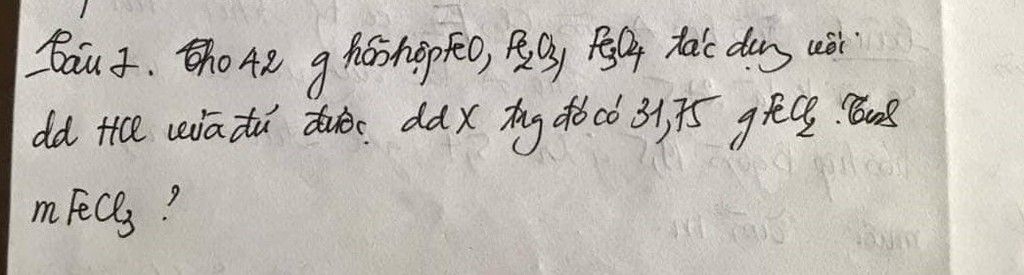 Câu 1. Cho 42 g hỗn hợp FeO, Fe2O3, Fe3O4 tác dụng với
dd HCl vừa đủ được dd X trg đó có 31,75 g FeCl2. Tính
mFeCl3 ?